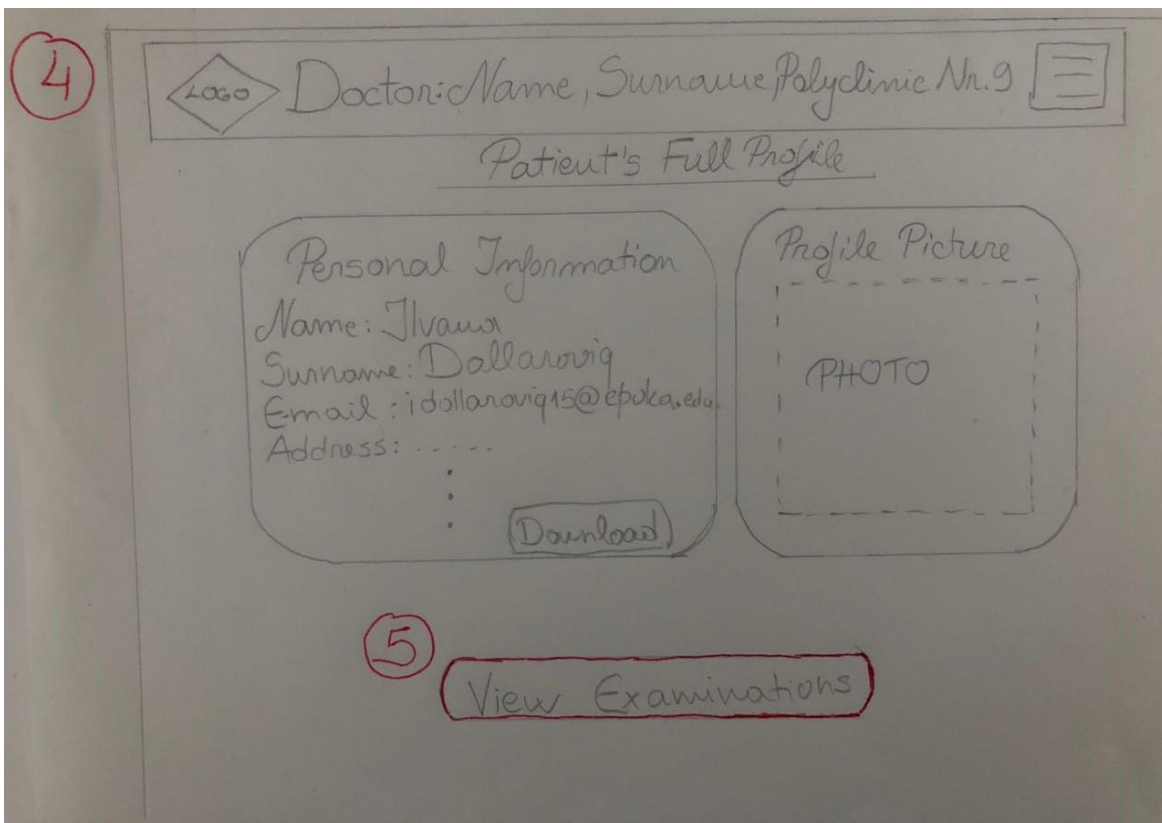 4
LOGO Doctor: Name, Surname, Polyclinic Nr.9
Patient's Full Profile
Personal Information
Name: Ilvana
Surname: Dollaroviq
Email: idollaroviq15@epoka.edu.
Address: .....
Download
Profile Picture
PHOTO
5
View Examinations